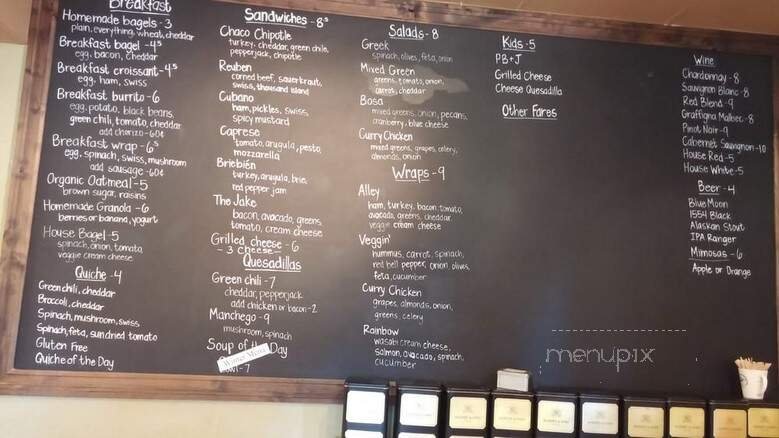 Breakfast
Homemade bagels - 3
plain, everything, wheat, cheddar
Breakfast bagel - 4⁵
egg, bacon, cheddar
Breakfast croissant - 4⁵
egg, ham, swiss
Breakfast burrito - 6
egg, potato, black beans,
green chili, tomato, cheddar
add chorizo - 60¢
Breakfast wrap - 6⁵
egg, spinach, swiss, mushroom
add sausage - 60¢
Organic Oatmeal - 5
brown sugar, raisins
Homemade Granola - 6
berries or banana, yogurt
House Bagel - 5
spinach, onion, tomato,
veggie cream cheese
Quiche - 4
Green chili, cheddar
Broccoli, cheddar
Spinach, mushroom, swiss
Spinach, feta, sun dried tomato
Gluten Free
Quiche of the Day
Sandwiches - 8⁵
Chaco Chipotle
turkey, cheddar, green chile,
pepperjack, chipotle
Reuben
corned beef, sauerkraut,
swiss, thousand island
Cubano
ham, pickles, swiss,
spicy mustard
Caprese
tomato, arugula, pesto,
mozzarella
Briebién
turkey, arugula, brie,
red pepper jam
The Jake
bacon, avocado, greens,
tomato, cream cheese
Grilled cheese - 6
- 3 cheese -
Quesadillas
Green chili - 7
cheddar, pepperjack
add chicken or bacon - 2
Manchego - 9
mushroom, spinach
Soup of the Day
Winter Menu
- 7
Salads - 8
Greek
spinach, olives, feta, onion
Mixed Green
greens, tomato, onion,
carrot, cheddar
Bosa
mixed greens, onion, pecans,
cranberry, blue cheese
Curry Chicken
mixed greens, grapes, celery,
almonds, onion
Wraps - 9
Alley
ham, turkey, bacon, tomato,
avocado, greens, cheddar,
veggie cream cheese
Veggin'
hummus, carrot, spinach,
red bell pepper, onion, olives,
feta, cucumber
Curry Chicken
grapes, almonds, onion,
greens, celery
Rainbow
wasabi cream cheese,
salmon, avocado, spinach,
cucumber
Kids - 5
PB + J
Grilled Cheese
Cheese Quesadilla
Other Fares
Wine
Chardonnay - 8
Sauvignon Blanc - 8
Red Blend - 9
Graffigna Malbec - 8
Pinot Noir - 9
Cabernet Sauvignon - 10
House Red - 5
House White - 5
Beer - 4
Blue Moon
1554 Black
Alaskan Stout
IPA Ranger
Mimosas - 6
Apple or Orange
menupix